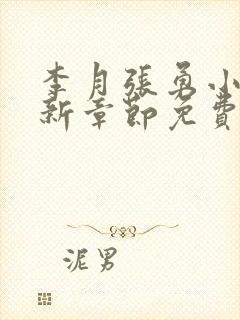 李月張勇小
新章節免費
泥男